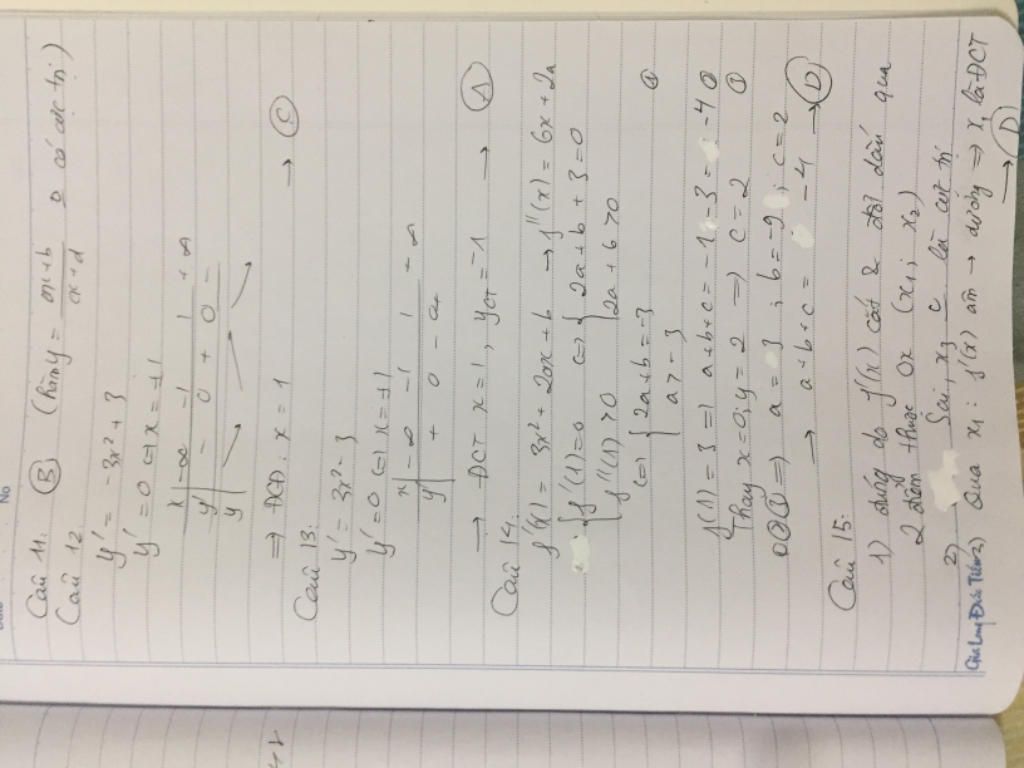 No
Câu 11. B (hàm y = ax+b / cx+d 0 có cực trị)
Câu 12.
y' = -3x² + 3
y' = 0 (=) x = ±1
x | -∞ -1 1 +∞
y' | - 0 + 0 -
y
=) ĐCĐ: x = 1 → C
Câu 13:
y' = 3x² - 3
y' = 0 (=) x = ±1
x | -∞ -1 1 +∞
y' | + 0 - 
→ ĐCT x = 1, yCT = -1 → A
Câu 14.
f'(x) = 3x² + 2ax + b → f''(x) = 6x + 2a
{ f'(1) = 0 (=) { 2a + b + 3 = 0
f''(1) > 0 2a + 6 > 0
(=) { 2a + b = -3
a > -3
f(1) = -3 =) a + b + c = -1 - 3 = -4
Thay x = 0; y = 2 =) c = 2
=) a = 3 ; b = -9 ; c = 2
→ a + b + c = -4 → D
Câu 15:
1) đúng do f'(x) cắt & đổi dấu qua
2 điểm thuộc Ox (x₁; x₂)
2) Sai, x₃ là cực trị
Qua x₁: f'(x) âm → dương => x₁ là ĐCT
→ D